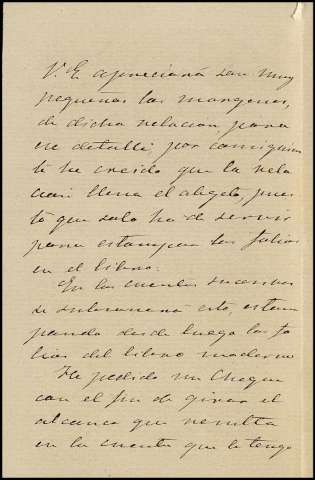 V. E. apreciará son muy
pequeños los margenes,
de dicha relacion, para
ese detalle, por consiguien
te he creido que la rela
cion llena el objeto, pues
to que solo ha de servir
para estampar los folios
en el libro.
En las cuentas sucesivas
se subsanará esto, estam
pando desde luego los fo
lios del libro moderno
He pedido un Cheque
con el fin de girar el
alcance que resulta
en la cuenta que le tengo